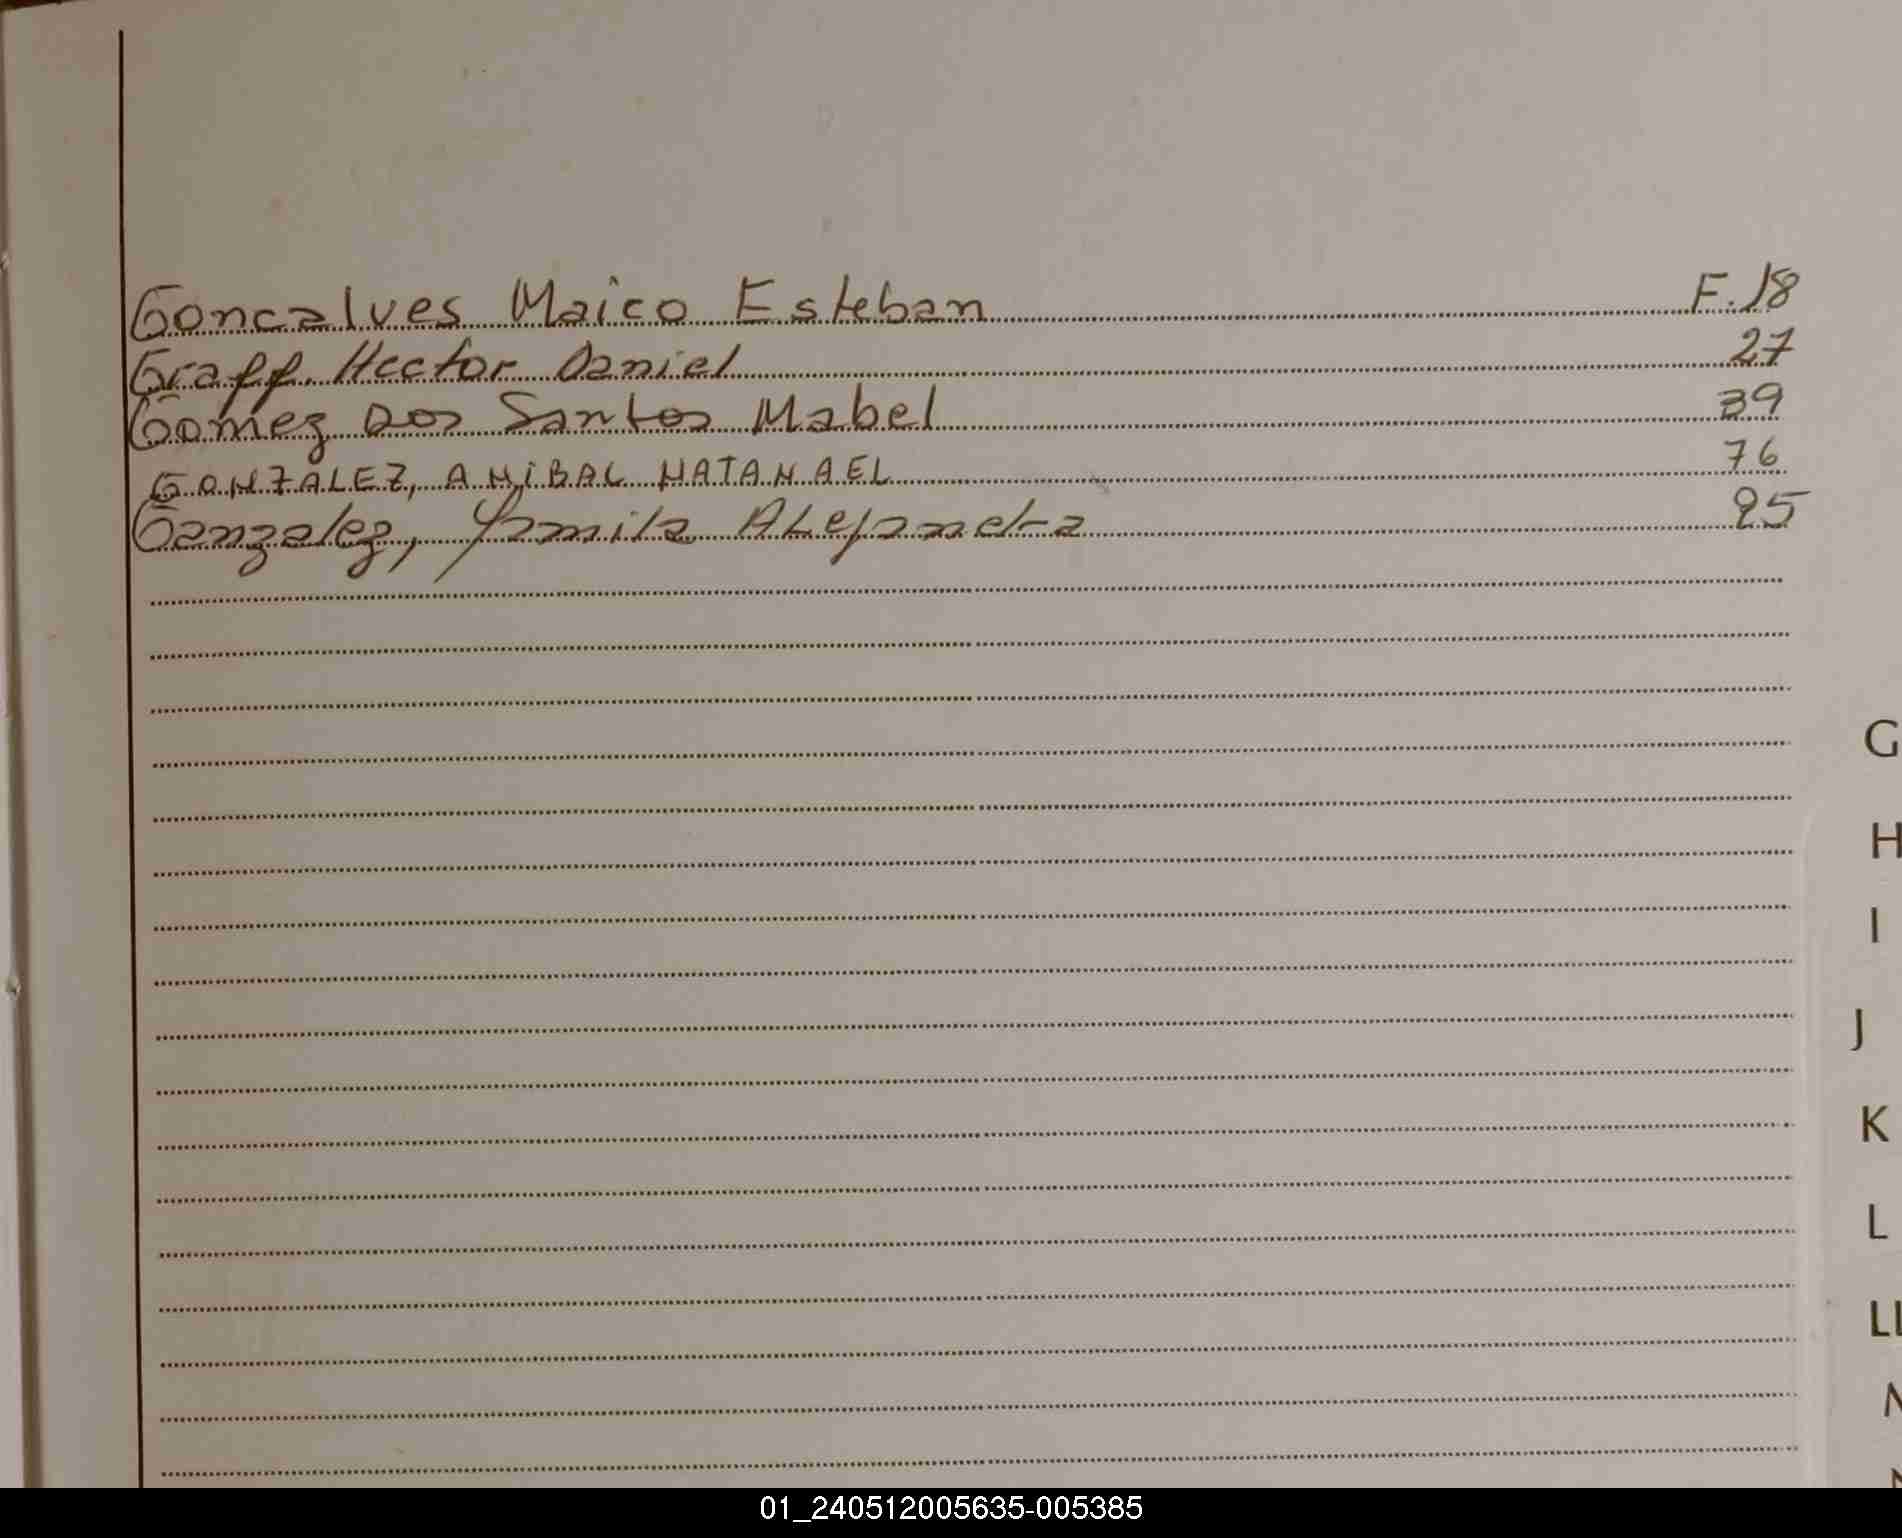 Goncalves Maico Esteban F. 18
Graff, Hector Daniel 27
Gomez Dos Santos Mabel 39
GONZALEZ, ANIBAL NATANAEL 76
Gonzalez, Yamila Alejandra 95
G
H
I
J
K
L
LL
01_240512005635-005385